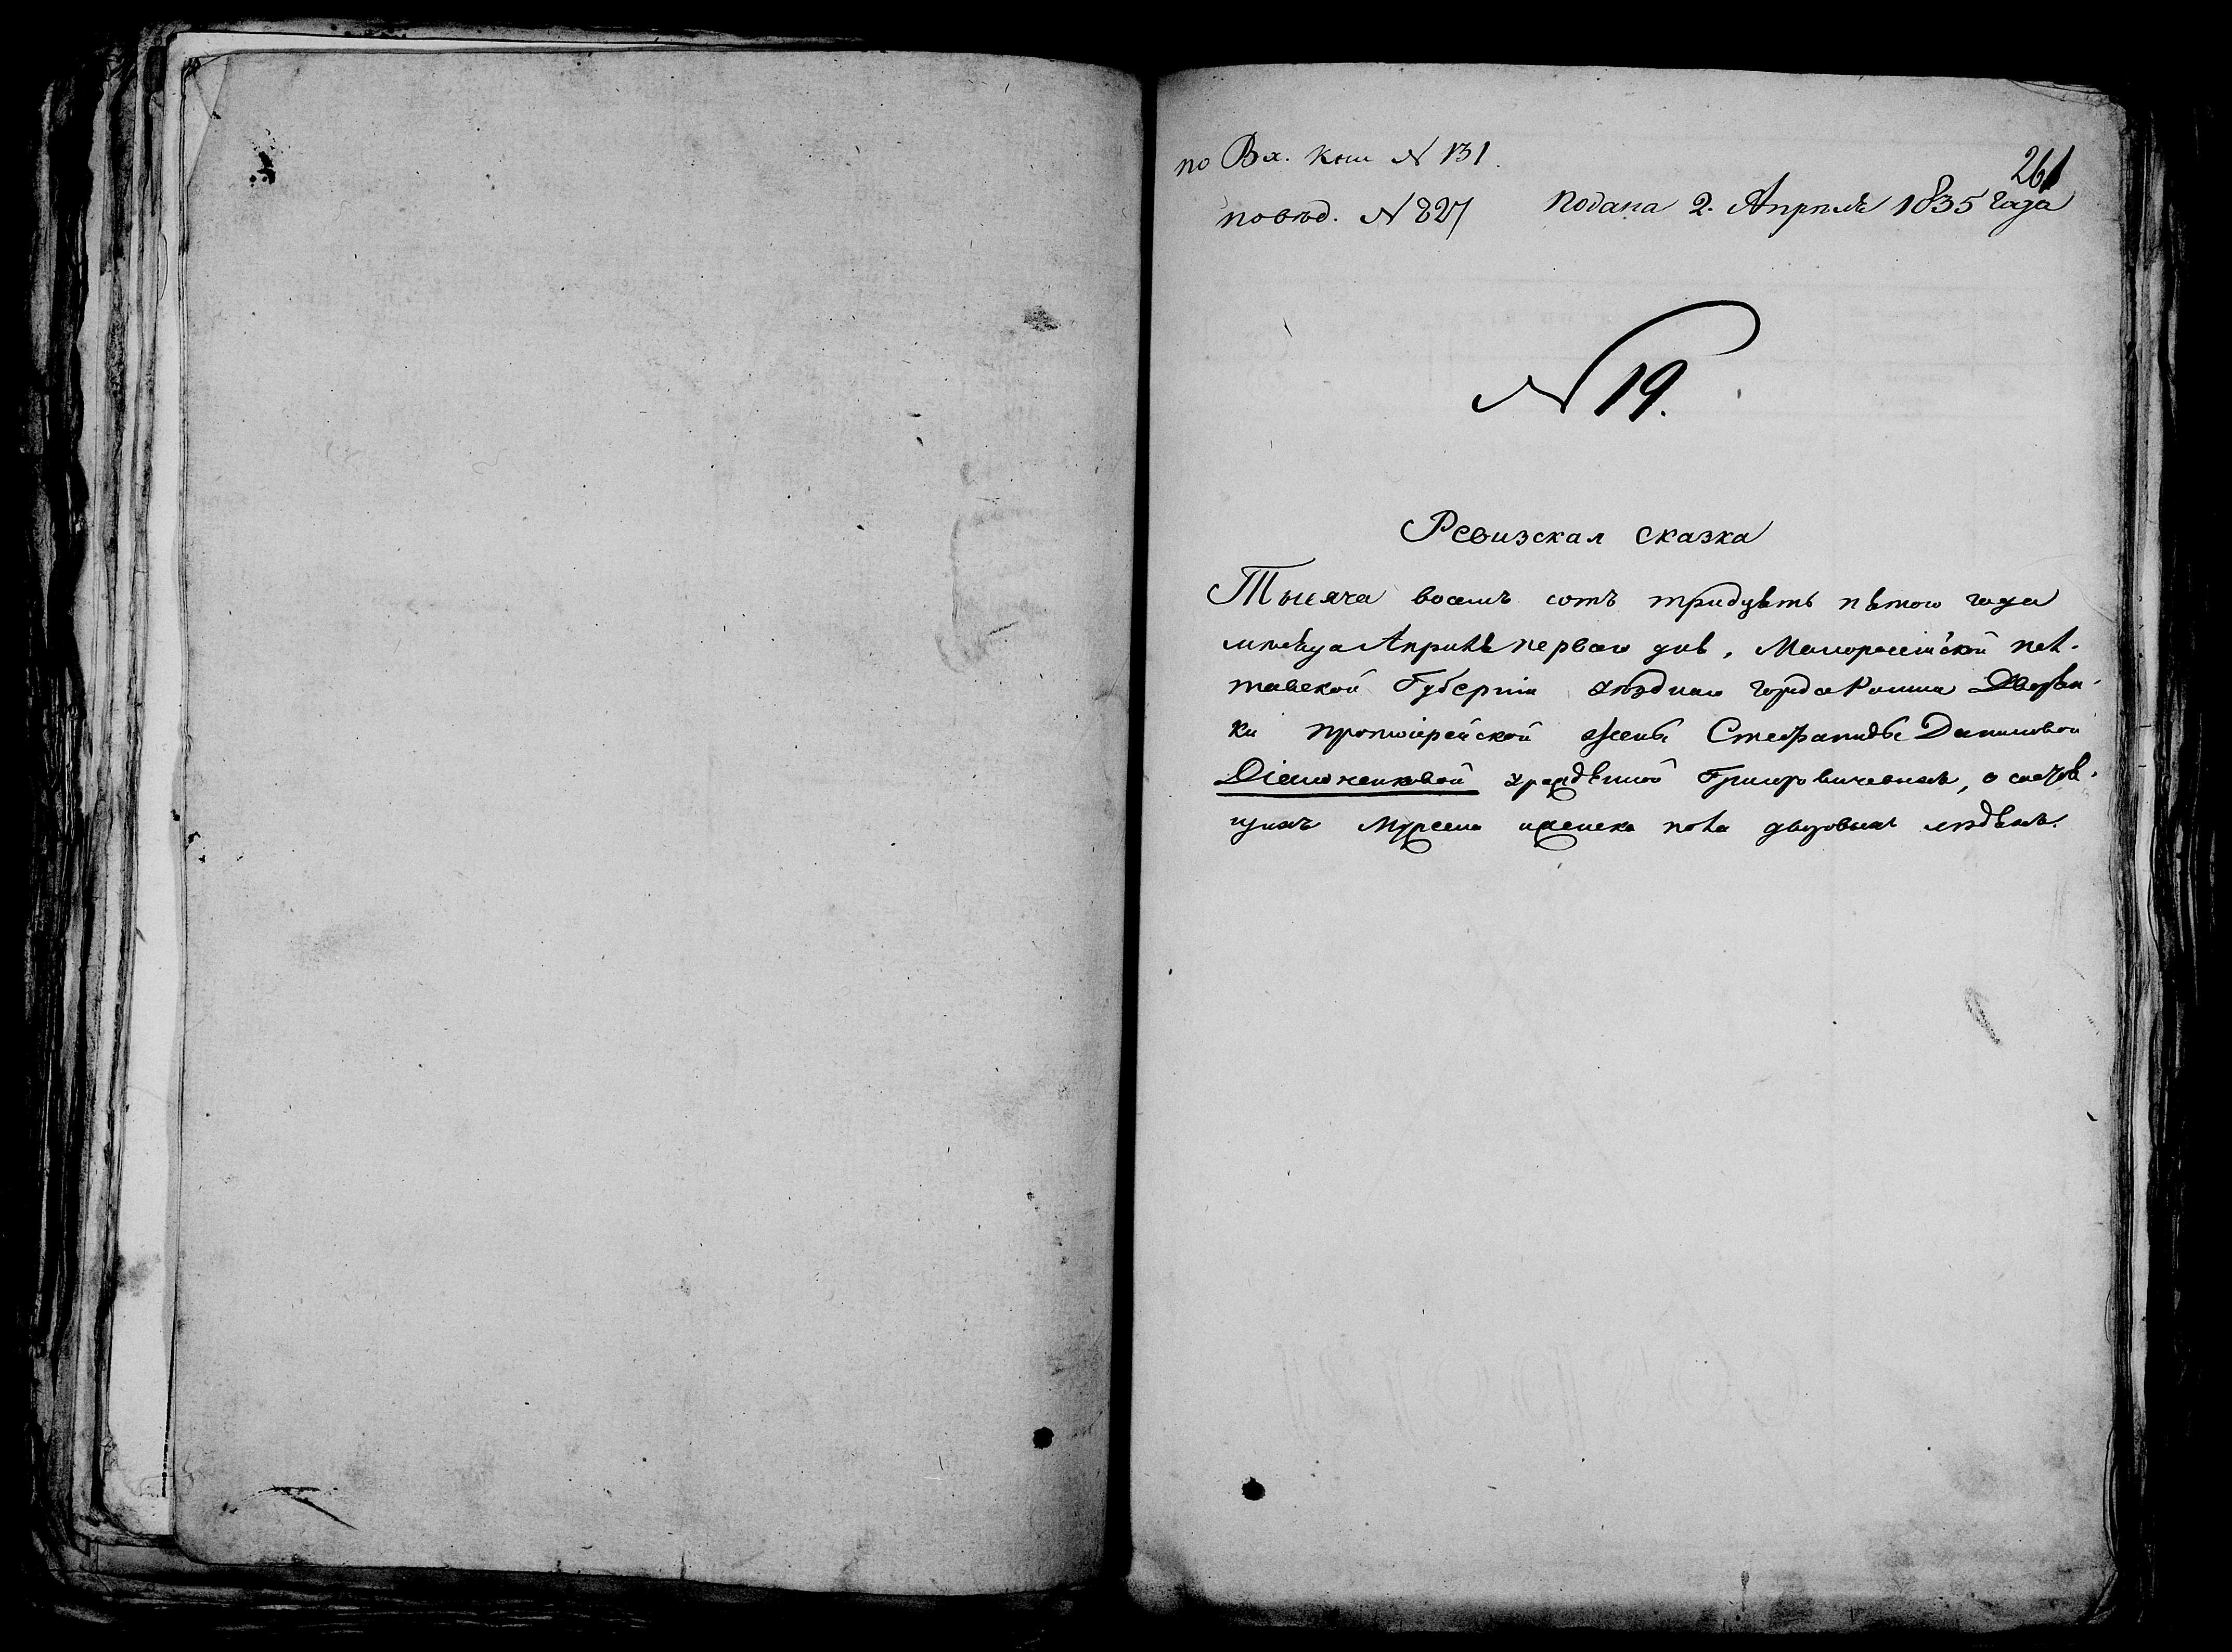 по Вх. кни N 131.
261
по вѣд. N 827
Подана 2. Апрѣля 1835 года
N 19.
Ревизская сказка
Тысяча восемъ сотъ тридцять пятого года
мѣсяца Априля первого дня, Малоросійской пол-
тавской Губерніи уѣздного города Дворян-
ки протоіерейской жены Стефаниды Даниловой
урожденной Григоровичевнѣ, о состоя-
щихъ мужеска и женска пола дворовыхъ людяхъ.